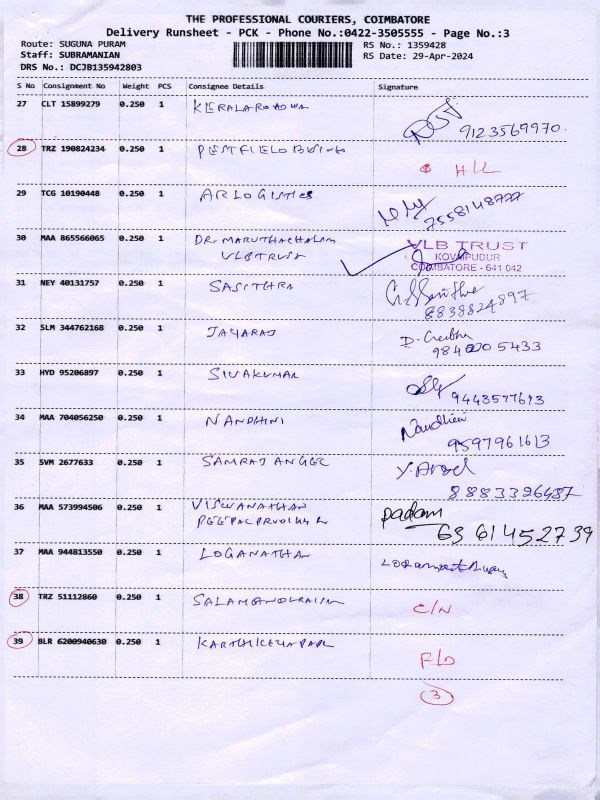 THE PROFESSIONAL COURIERS, COIMBATORE
Delivery Runsheet - PCK - Phone No.:0422-3505555 - Page No.:3
Route: SUGUNA PURAM RS No.: 1359428
Staff: SUBRAMANIAN RS Date: 29-Apr-2024
DRS No.: DCJB135942803
S No Consignment No Weight PCS Consignee Details Signature
27 CLT 15899279 0.250 1
9123569970.
28 TRZ 190824234 0.250 1
29 TCG 10190448 0.250 1 AR LOGISTICS
7558148777
30 MAA 865566065 0.250 1 DR. MARUTHACHALAM
VLB TRUST
VLB TRUST
KOVAIPUDUR
COIMBATORE - 641 042
31 NEY 40131757 0.250 1 SASITHRA
8838824897
32 SLM 344762168 0.250 1 JAYARAJ
984200 5433
33 HYD 95206897 0.250 1 SIVAKUMAR
9443577613
34 MAA 704056250 0.250 1 NANDHINI
Nandhini
9597961613
35 SVM 2677633 0.250 1 SAMRAJ
8883326487
36 MAA 573994506 0.250 1 VISWANATHAN
padam
6361452739
37 MAA 944813550 0.250 1 LOGANATHAN
38 TRZ 51112860 0.250 1
C/N
39 BLR 6200940630 0.250 1
F/D
3